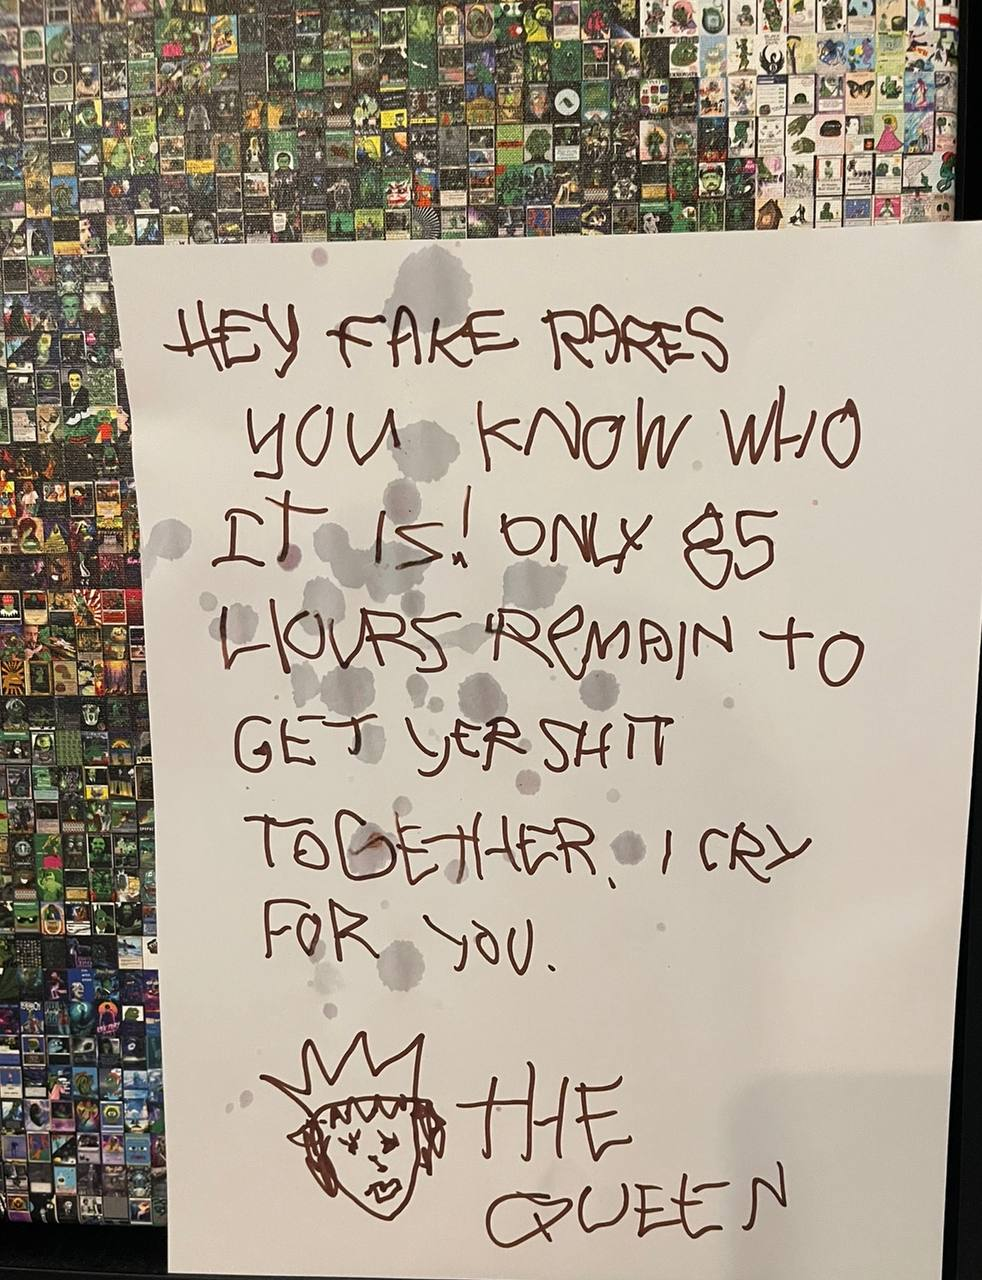 HEY FAKE RARES
YOU KNOW WHO
IT IS! ONLY 85
HOURS REMAIN TO
GET YER SHIT
TOGETHER. I CRY
FOR YOU.
THE
QUEEN